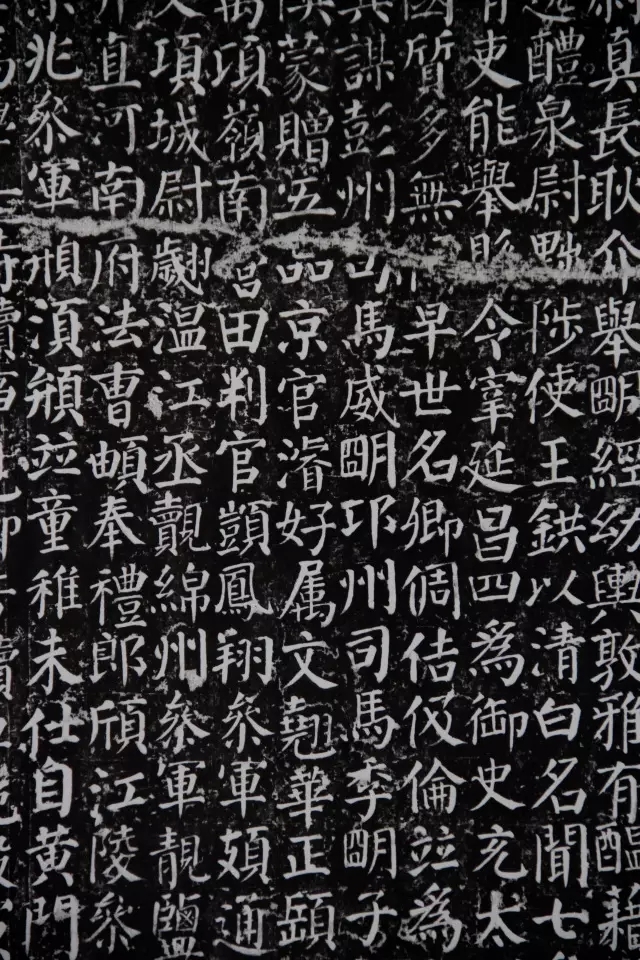 真長耿介舉明經幼輿敦雅有醞藉
醴泉尉黜陟使王鉷以清白名聞七
吏能舉縣令宰延昌四為御史充太
國質多無祿早世名卿倜佶伋倫並為
謀彭州司馬威明邛州司馬季明子
蒙贈五品京官濬好属文翹華正
萬項嶺南營田判官顗鳳翔參軍頗通
項城尉翽温江丞覿綿州參軍靚鹽
直河南府法曹頔奉禮郎頎江陵參
兆參軍須並童稚未仕自黃門